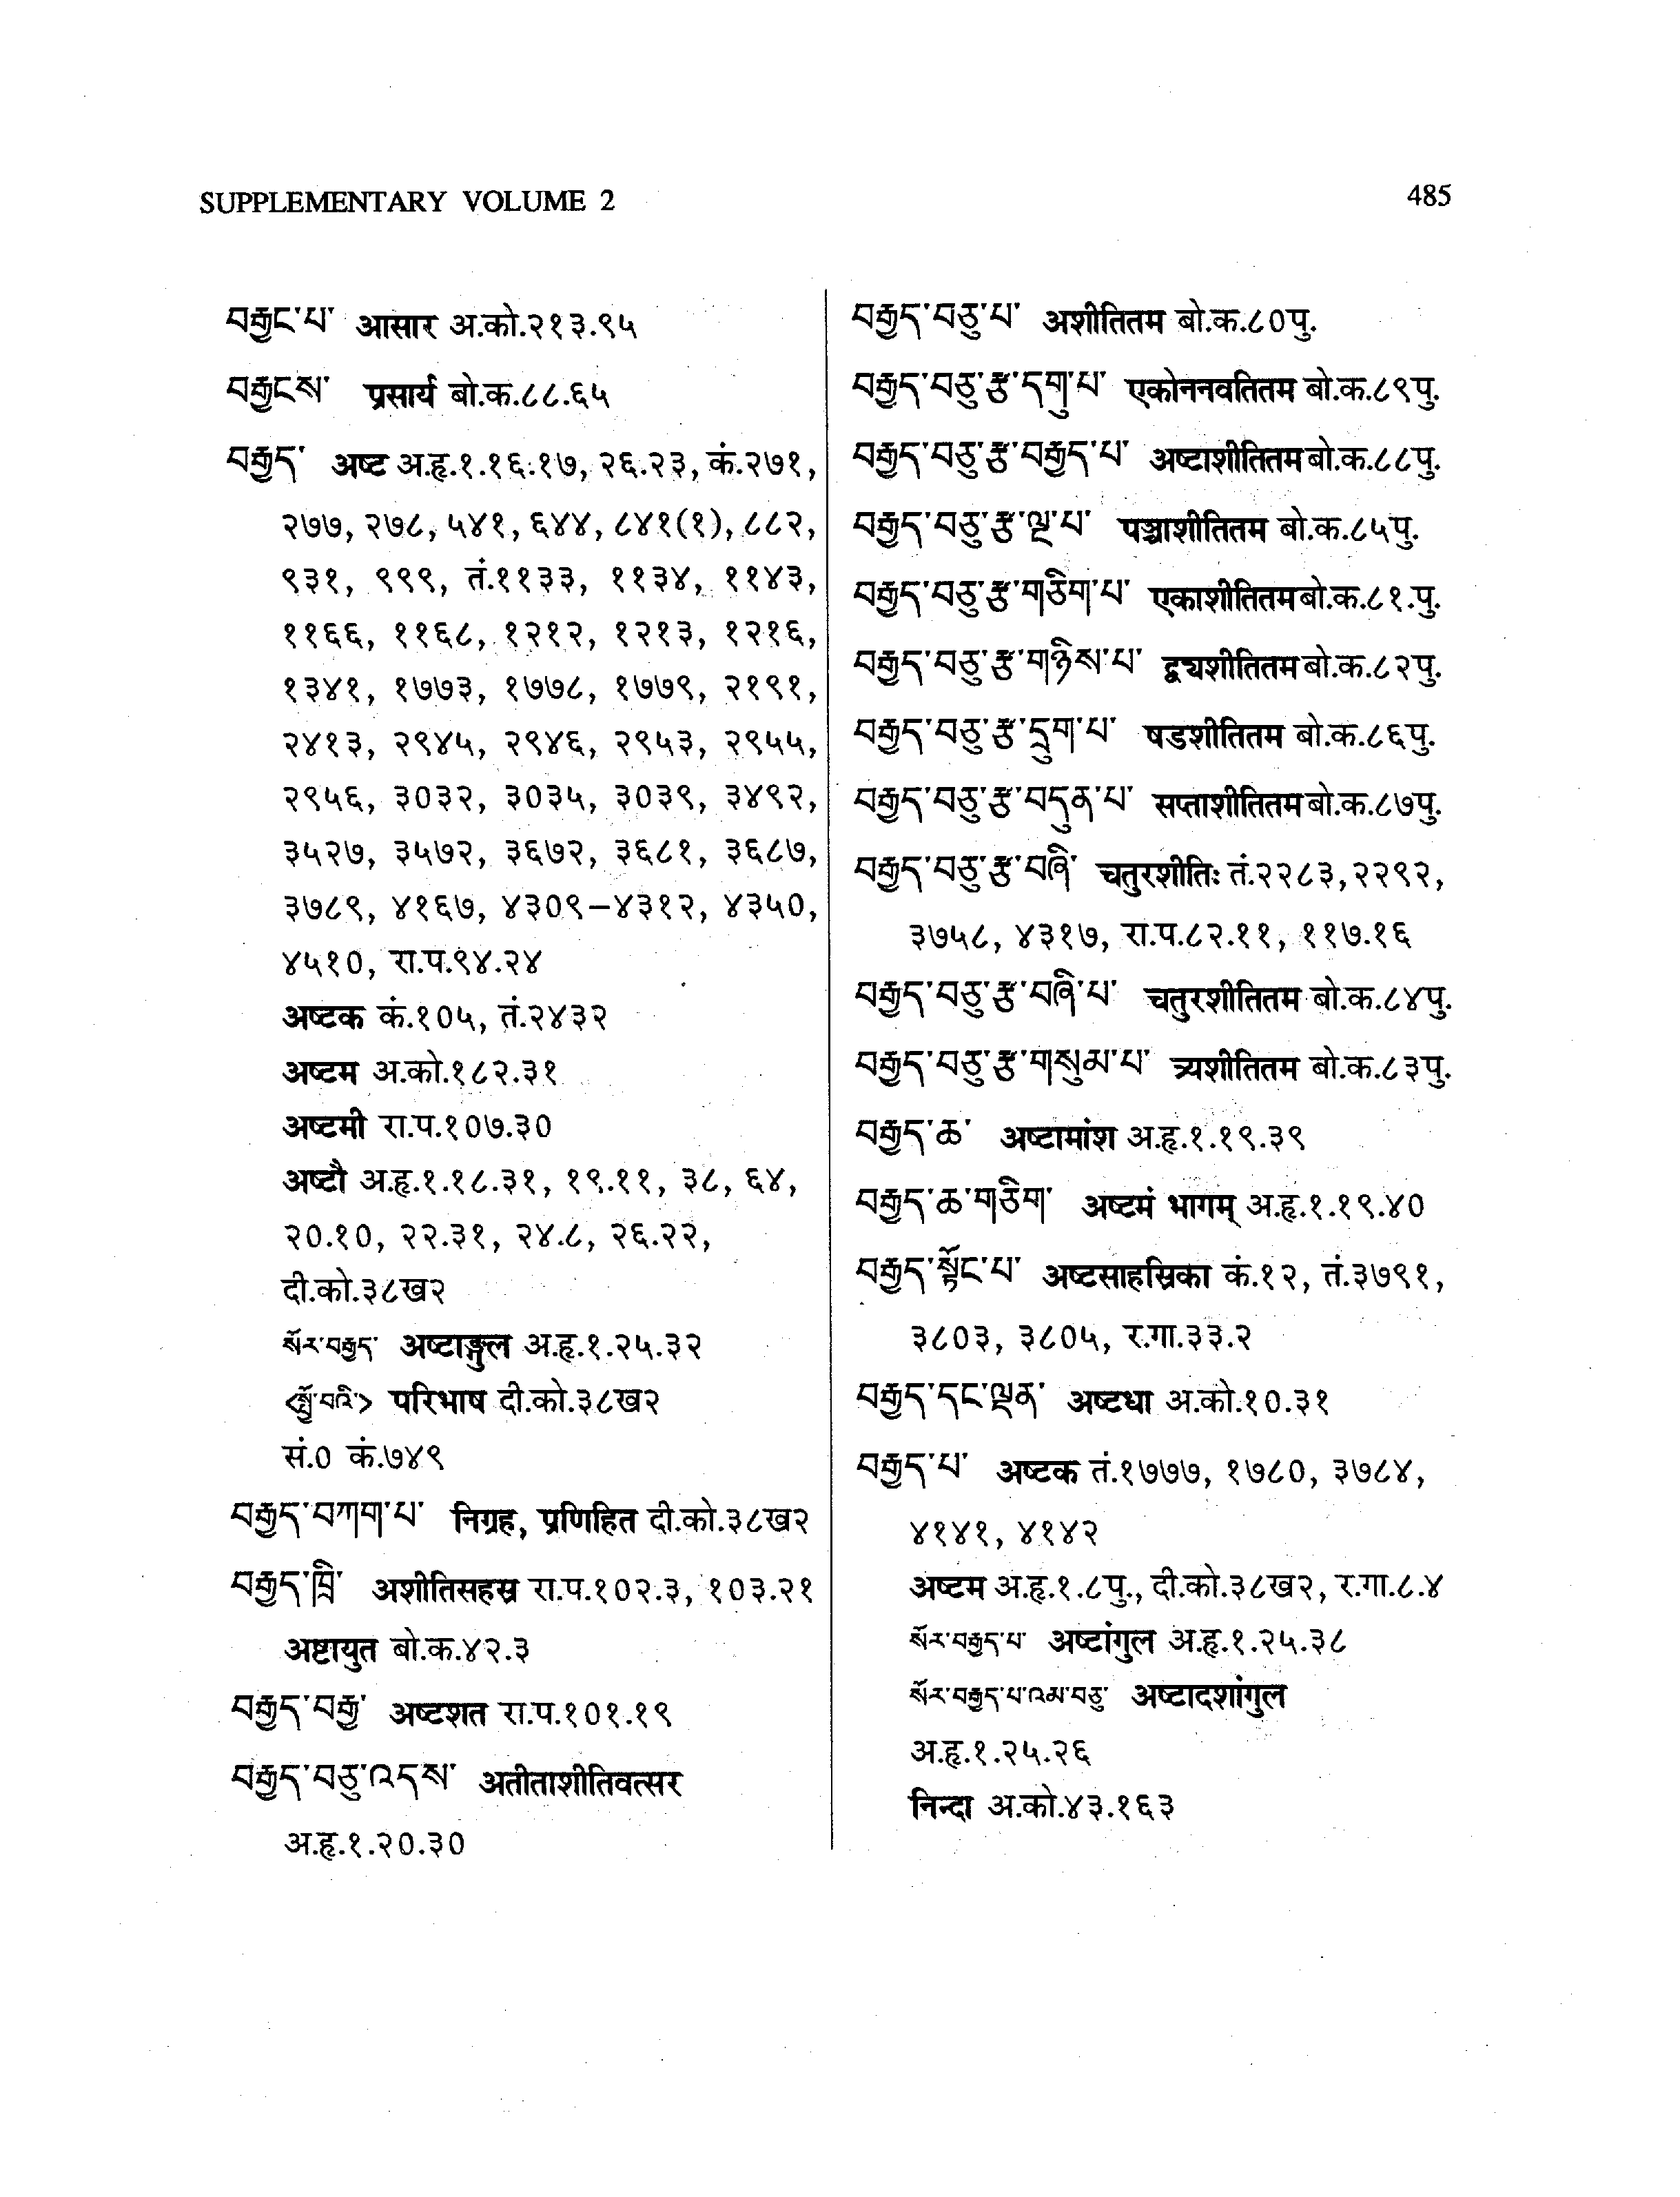 SUPPLEMENTARY VOLUME 2
485
བརྒྱང་པ་ आसार अ.को.२१३.९५
བརྒྱངས་ प्रसार्य बो.क.८८.६५
བརྒྱད་ अष्ट अ.हृ.१.१६.१७, २६.२३, कं.२७१,
२७७, २७८, ५४१, ६४४, ८४१(१), ८८२,
९३१, ९९९, तं.११३३, ११३४, ११४३,
११६६, ११६८, १२१२, १२१३, १२१६,
१३४१, १७७३, १७७८, १७७९, २१९१,
२४१३, २९४५, २९४६, २९५३, २९५५,
२९५६, ३०३२, ३०३५, ३०३९, ३४९२,
३५२७, ३५७२, ३६७२, ३६८१, ३६८७,
३७८९, ४१६७, ४३०९-४३१२, ४३५०,
४५१०, रा.प.९४.२४
अष्टक कं.१०५, तं.२४३२
अष्टम अ.को.१८२.३१
अष्टमी रा.प.१०७.३०
अष्टौ अ.हृ.१.१८.३१, १९.११, ३८, ६४,
२०.१०, २२.३१, २४.८, २६.२२,
दी.को.३८ख२
སོར་བརྒྱད་ अष्टाङ्गुल अ.हृ.१.२५.३२
<སྤྱོ་བའི་> परिभाष दी.को.३८ख२
सं.० कं.७४९
བརྒྱད་བཀག་པ་ निग्रह, प्रणिहित दी.को.३८ख२
བརྒྱད་ཁྲི་ अशीतिसहस्र रा.प.१०२.३, १०३.२१
अष्टायुत बो.क.४२.३
བརྒྱད་བརྒྱ་ अष्टशत रा.प.१०१.१९
བརྒྱད་བཅུ་འདས་ अतीताशीतिवत्सर
अ.हृ.१.२०.३०
བརྒྱད་བཅུ་པ་ अशीतितम बो.क.८०पु.
བརྒྱད་བཅུ་རྩ་དགུ་པ་ एकोननवतितम बो.क.८९पु.
བརྒྱད་བཅུ་རྩ་བརྒྱད་པ་ अष्टाशीतितम बो.क.८८पु.
བརྒྱད་བཅུ་རྩ་ལྔ་པ་ पञ्चाशीतितम बो.क.८५पु.
བརྒྱད་བཅུ་རྩ་གཅིག་པ་ एकाशीतितम बो.क.८१.पु.
བརྒྱད་བཅུ་རྩ་གཉིས་པ་ द्व्यशीतितम बो.क.८२पु.
བརྒྱད་བཅུ་རྩ་དྲུག་པ་ षडशीतितम बो.क.८६पु.
བརྒྱད་བཅུ་རྩ་བདུན་པ་ सप्ताशीतितम बो.क.८७पु.
བརྒྱད་བཅུ་རྩ་བཞི་ चतुरशीतिः तं.२२८३, २२९२,
३७५८, ४३१७, रा.प.८२.११, ११७.१६
བརྒྱད་བཅུ་རྩ་བཞི་པ་ चतुरशीतितम बो.क.८४पु.
བརྒྱད་བཅུ་རྩ་གསུམ་པ་ त्र्यशीतितम बो.क.८३पु.
བརྒྱད་ཆ་ अष्टामांश अ.हृ.१.१९.३९
བརྒྱད་ཆ་གཅིག་ अष्टमं भागम् अ.हृ.१.१९.४०
བརྒྱད་སྟོང་པ་ अष्टसाहस्रिका कं.१२, तं.३७९१,
३८०३, ३८०५, र.गा.३३.२
བརྒྱད་དང་ལྡན་ अष्टधा अ.को.१०.३१
བརྒྱད་པ་ अष्टक तं.१७७७, १७८०, ३७८४,
४१४१, ४१४२
अष्टम अ.हृ.१.८पु., दी.को.३८ख२, र.गा.८.४
སོར་བརྒྱད་པ་ अष्टांगुल अ.हृ.१.२५.३८
སོར་བརྒྱད་པ་འམ་བཅུ་ अष्टादशांगुल
अ.हृ.१.२५.२६
निन्दा अ.को.४३.१६३